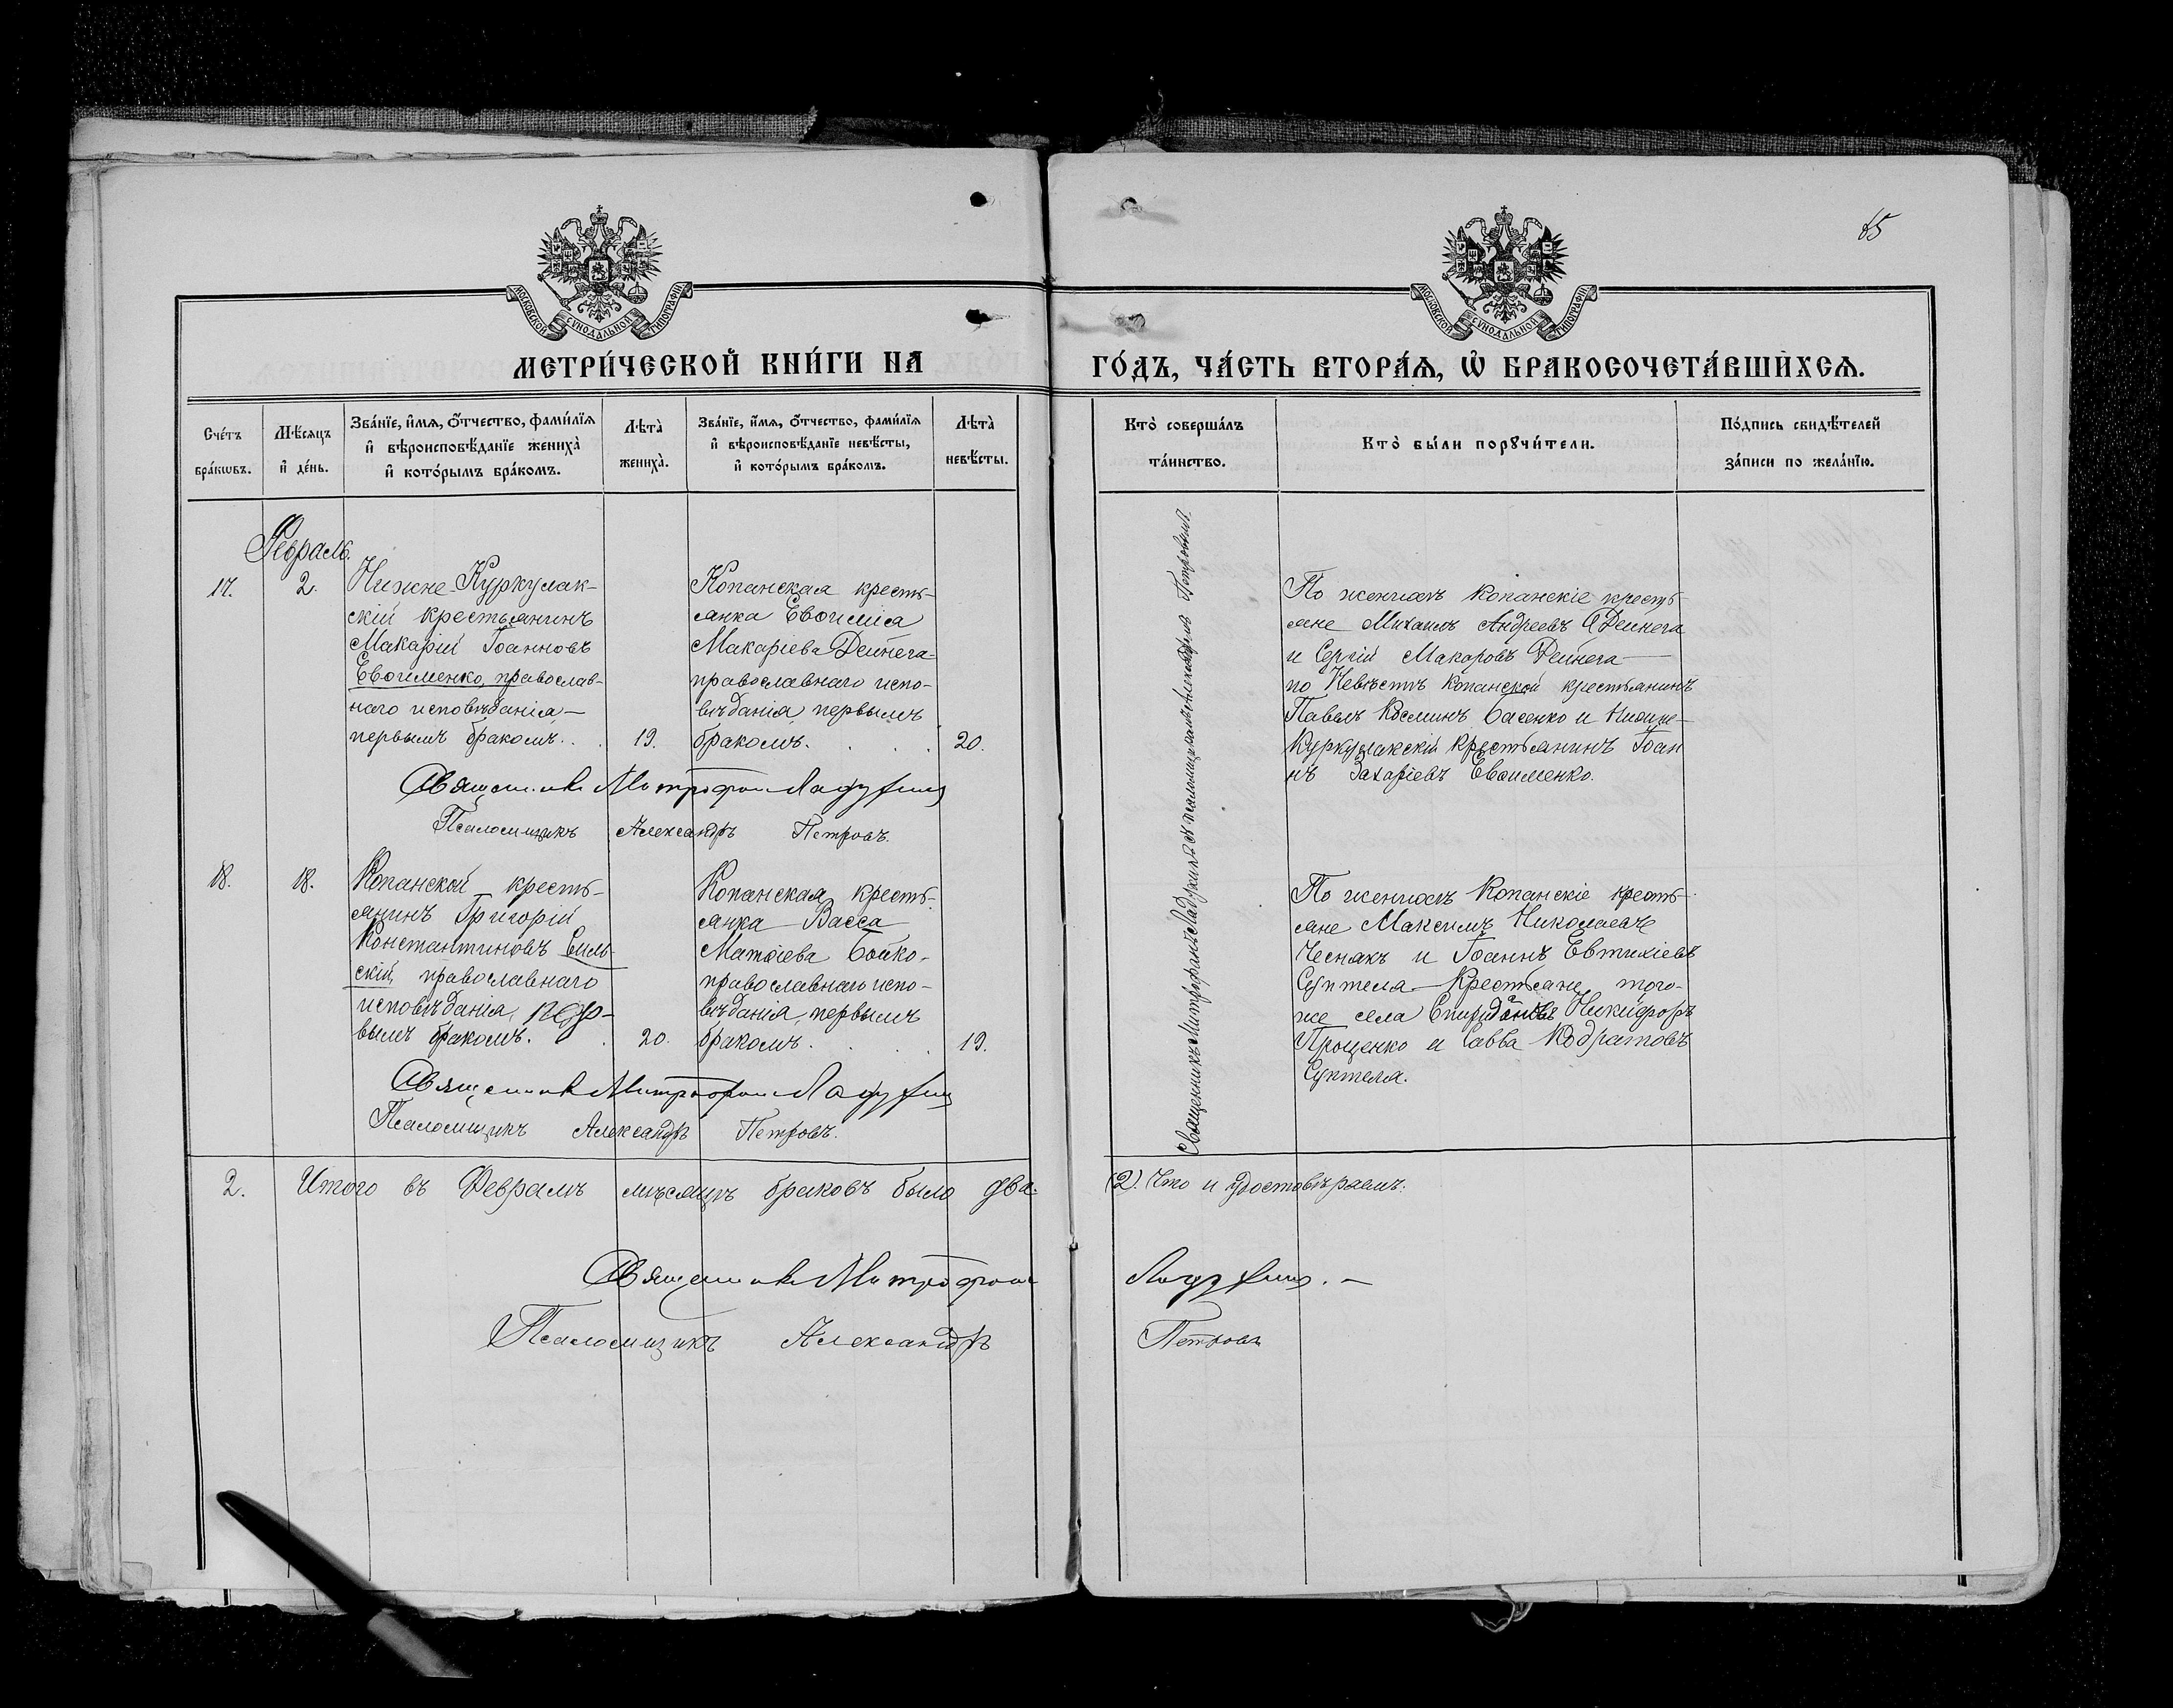 85
МОСКОВСКОЙ СѴНОДАЛЬНОЙ ТИПОГРАФІИ
МОСКОВСКОЙ СѴНОДАЛЬНОЙ ТИПОГРАФІИ
МЕТРИ́ЧЕСКОЙ КНИ́ГИ НА ГО́ДЪ, ЧА́СТЬ ВТОРА́Я, Ѡ҆ БРАКОСОЧЕТА́ВШИХСЯ.
Сче́тъ
бра́кѡвъ.
Мѣ́сяцъ
и҆ де́нь.
Зва́нїе, и҆́мя, ѻ҆́тчество, фами́лїя
и҆ вѣроисповѣ́данїе жениха̀
и҆ кото́рымъ бра́комъ.
Лѣта̀
жениха̀.
Зва́нїе, и҆́мя, ѻ҆́тчество, фами́лїя
и҆ вѣроисповѣ́данїе невѣ́сты,
и҆ кото́рымъ бра́комъ.
Лѣта̀
невѣ́сты.
Кто̀ соверша́лъ
та́инство.
Кто̀ бы́ли порꙋчи́тели.
По́дпись свидѣ́телей
за́писи по жела́нїю.
Февраль.
17.
2.
Нижне-Куркулак-
скій крестьянинъ
Макарій Іоанновъ
Евѳименко, православ-
наго исповѣданія —
первымъ бракомъ. .
19.
Копанская кресть-
янка Евѳимія
Макаріева Дейнега
православнаго испо-
вѣданія, первымъ
бракомъ. . . .
20.
Священникъ Митрофанъ Ладухинъ
Псаломщикъ Александръ Петровъ.
По женихѣ Копанскіе кресть-
яне Михаилъ Андреевъ Дейнега
и Сергій Макаровъ Дейнега —
по Невѣстѣ Копанской крестьянинъ
Павелъ Косминъ Басенко и Нижне-
Куркулакскій крестьянинъ Іоан
нъ Захаріевъ Евѳименко.
18.
18.
Копанской кресть-
янинъ Григорій
Константиновъ Силь-
скій, православнаго
исповѣданія, пер-
вымъ бракомъ. .
20.
Копанская кресть-
янка Васса
Матѳіева Бойко-
православнаго испо-
вѣданія, первымъ
бракомъ. . . .
19.
Священникъ Митрофанъ Ладухинъ
Псаломщикъ Александръ Петровъ.
По женихѣ Копанскіе кресть-
яне Максимъ Николаевъ
Чеснакъ и Іоаннъ Евтихіевъ
Суптеля — Крестьяне того-
же села Никифоръ
Проценко и Савва Кодратовъ
Суптеля.
Священникъ Митрофанъ Ладухинъ съ псаломщикомъ Александромъ Петровымъ.
2. Итого въ Февралѣ мѣсяцѣ браковъ было два. (2) Что и удостовѣряемъ:
Священникъ Митрофанъ Ладухинъ. —
Псаломщикъ Александръ Петровъ